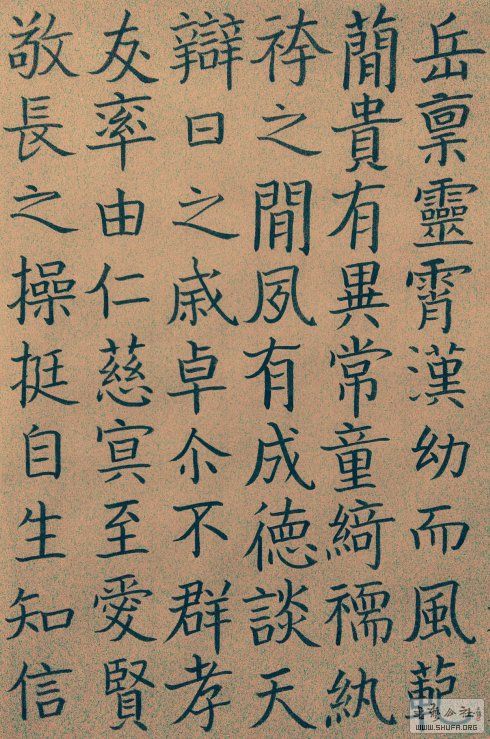 岳禀靈霄漢幼而風範
簡貴有異常童綺襦紈
袴之間夙有成德談天
辯日之歲卓尒不群孝
友率由仁慈冥至愛賢
敬長之操挺自生知信
WWW.SHUFA.ORG